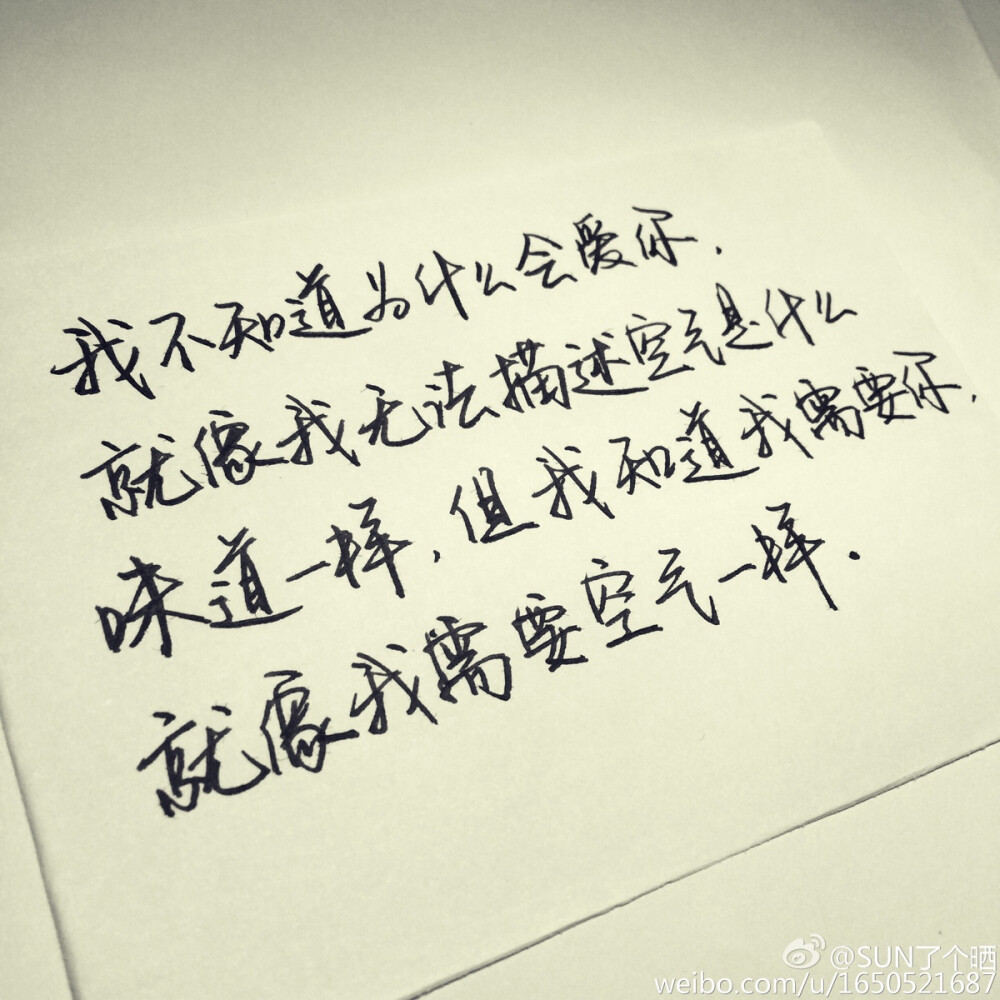 我不知道为什么会爱你.
就像我无法描述空气是什么
味道一样,但我知道我需要你,
就像我需要空气一样.
@SUN了个晒
weibo.com/u/1650521687